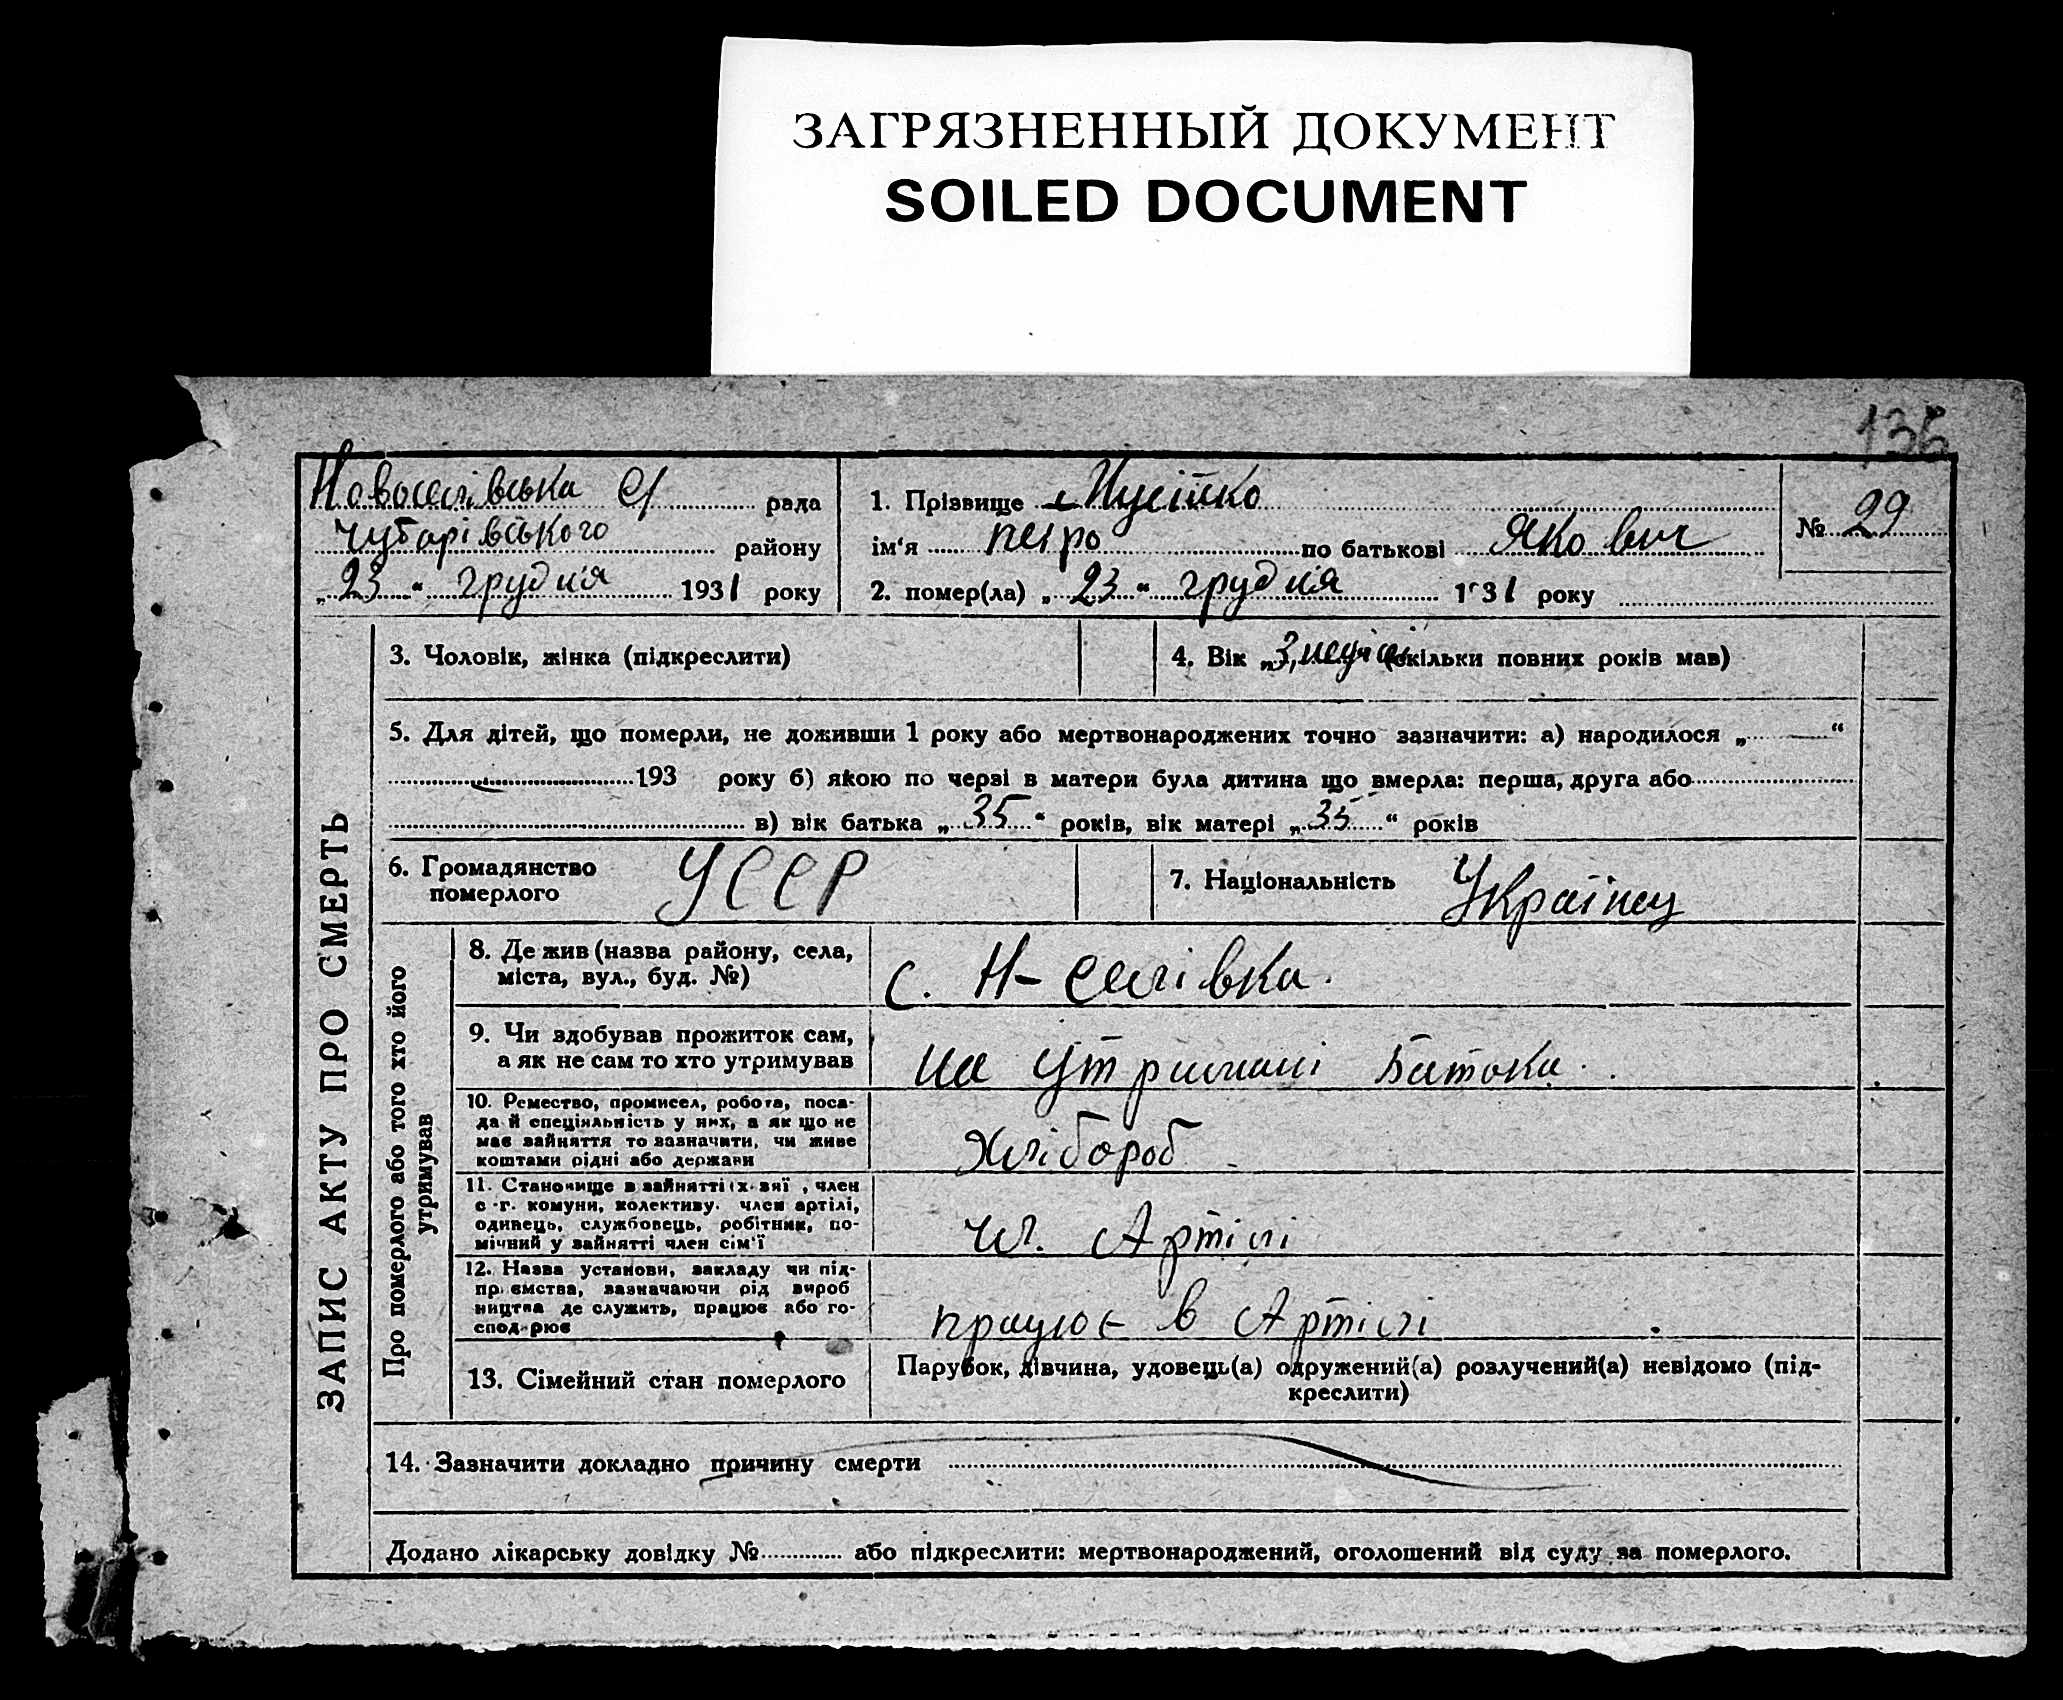 ЗАГРЯЗНЕННЫЙ ДОКУМЕНТ
SOILED DOCUMENT
135
Новоселівська с/ рада
Чубарівського району
„23" грудня 1931 року
1. Прізвище Мусійко
ім'я Петро по батькові Якович
№ 29
2. помер(ла) „23" грудня 1931 року
ЗАПИС АКТУ ПРО СМЕРТЬ
3. Чоловік, жінка (підкреслити)
4. Вік „3 неділі (скільки повних років мав)
5. Для дітей, що померли, не доживши 1 року або мертвонароджених точно зазначити: а) народилося „ — "
193 року б) якою по черзі в матери була дитина що вмерла: перша, друга або
в) вік батька „35" років, вік матері „35" років
6. Громадянство
померлого
УССР
7. Національність Українец
Про померлого або того хто його
утримував
8. Де жив (назва району, села,
міста, вул., буд. №)
с. Н-Селівка.
9. Чи здобував прожиток сам,
а як не сам то хто утримував
на утримані Батька.
10. Ремество, промисел, робота, поса-
да й спеціяльність у них, а як що не
має зайняття то зазначити, чи живе
коштами рідні або держави
Хлібороб
11. Становище в зайнятті
с.-г. комуни, колективу, член артілі,
одинець, службовець, робітник, по-
мічний у зайнятті член сім'ї
чл. Артілі
12. Назва установи, закладу чи під-
приємства, зазначаючи рід вироб
ництва де служить, працює або го-
сподарює
працює в Артілі
13. Сімейний стан померлого
Парубок, дівчина, удовець(а) одружений(а) розлучений(а) невідомо (під-
креслити)
14. Зазначити докладно причину смерти
Додано лікарську довідку № або підкреслити: мертвонароджений, оголошений від суду за померлого.